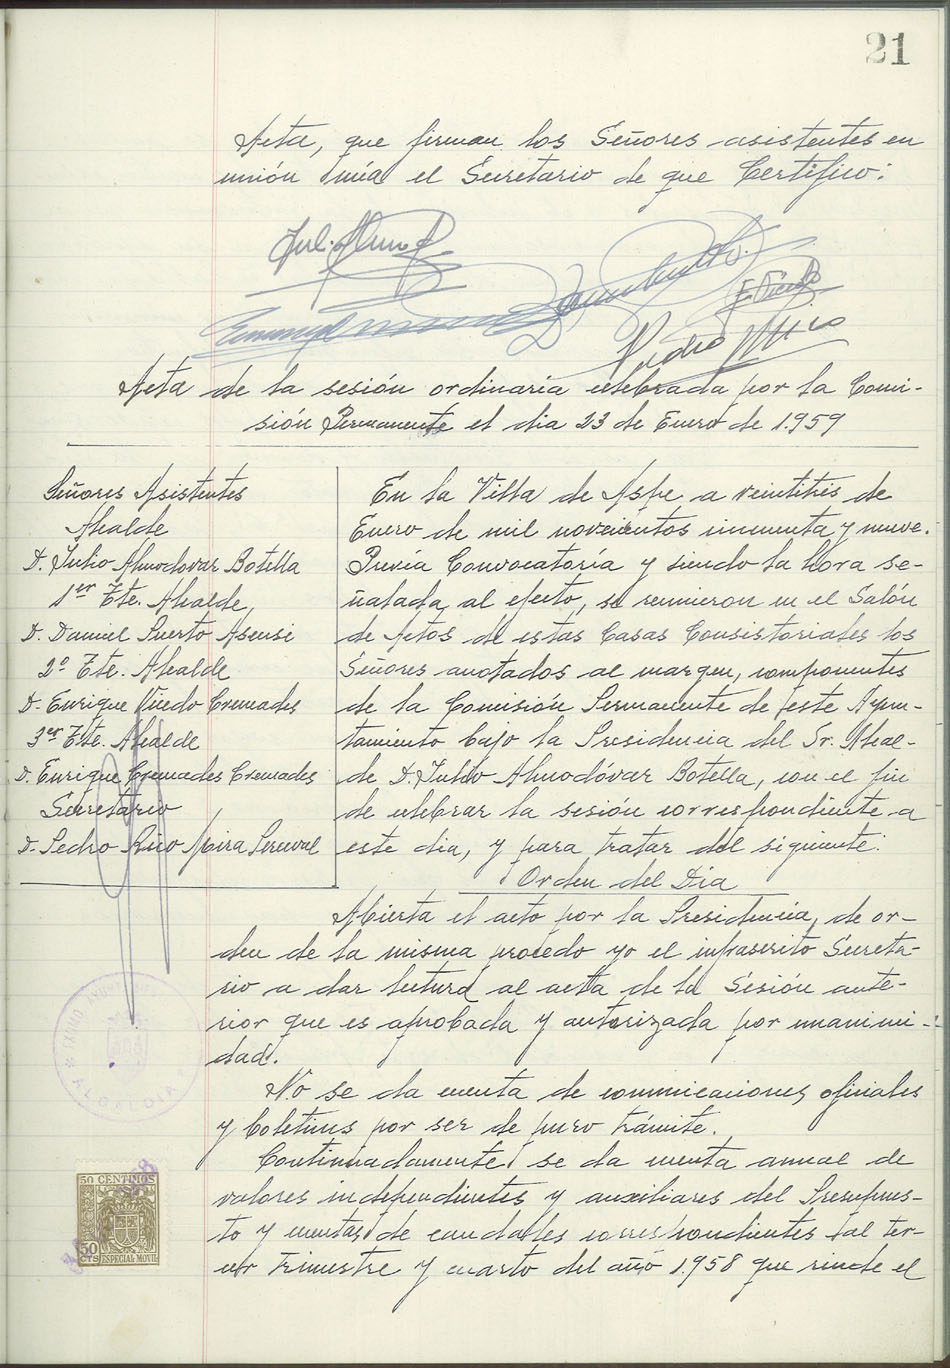 21
Acta, que firman los Señores asistentes en
unión mía el Secretario de que Certifico:
Acta de la sesión ordinaria celebrada por la Comi-
sión Permanente el dia 23 de Enero de 1.959
Señores Asistentes
Alcalde
D. Julio Almodovar Botella
1er Tte. Alcalde,
D. Daniel Puerto Asensi
2º Tte. Alcalde
D. Enrique Cremades
3er Tte. Alcalde
D. Enrique Cremades Cremades
Secretario
D. Pedro Rico Mira Perceval
En la Villa de Aspe a veintitrés de
Enero de mil novecientos cincuenta y nueve.
Previa Convocatoria y siendo la hora se-
ñalada al efecto, se reunieron en el Salón
de Actos de estas Casas Consistoriales los
Señores anotados al margen, componentes
de la Comisión Permanente de este Ayun-
tamiento bajo la Presidencia del Sr. Alcal-
de D. Julio Almodóvar Botella, con el fin
de celebrar la sesión correspondiente a
este dia, y para tratar del siguiente:
Orden del Día
Abierta el acto por la Presidencia, de or-
den de la misma procedo yo el infrascrito Secreta-
rio a dar lectura al acta de la Sesión ante-
rior que es aprobada y autorizada por unanimi-
dad.
No se da cuenta de comunicaciones oficiales
y Boletines por ser de puro trámite.
Continuadamente se da cuenta anual de
valores independientes y auxiliares del Presupues-
to y cuentas de caudales correspondientes al ter-
cer trimestre y cuarto del año 1.958 que rinde el
ALCALDIA
50 CENTIMOS
50
CTS ESPECIAL MOVIL